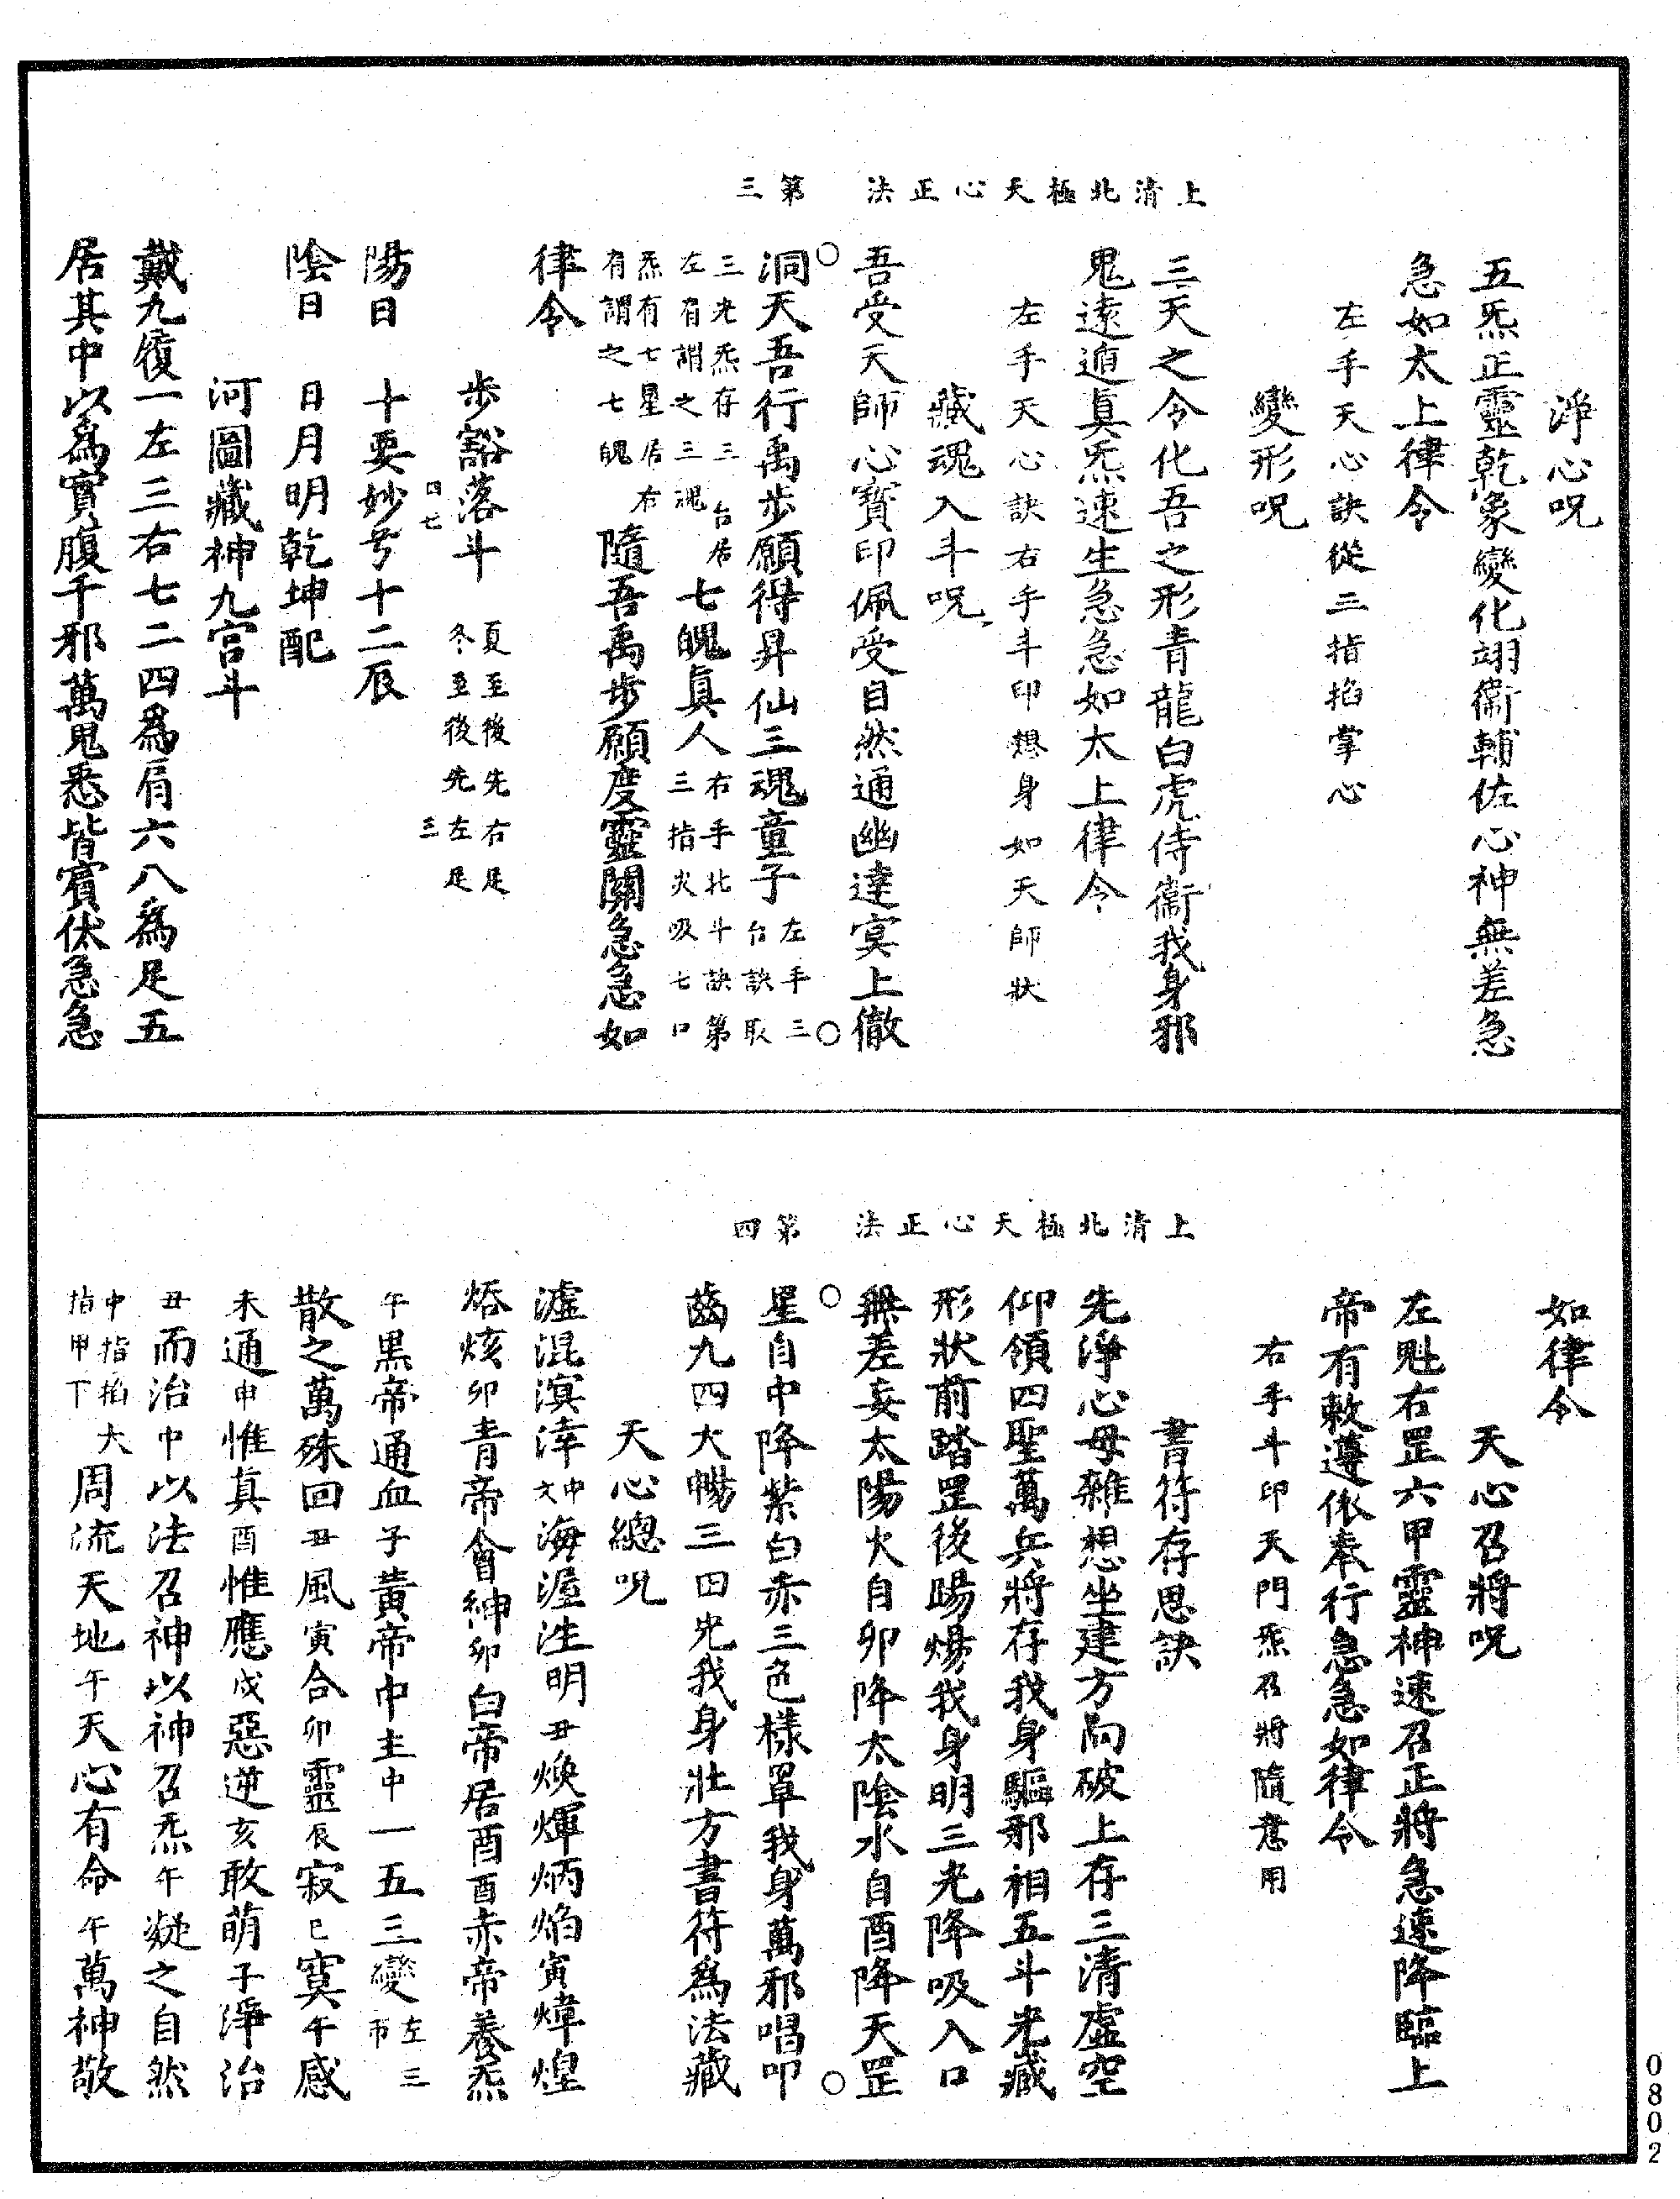 淨心呪
五炁正靈乾象變化翊衞輔佐心神無差急
急如太上律令
左手天心訣從三指掐掌心
變形呪
三天之令化吾之形青龍白虎侍衞我身邪
鬼遠遁真炁速生急急如太上律令
左手天心訣右手斗印想身如天師狀
藏魂入斗呪
吾受天師心寶印佩受自然通幽達寞上徹
上清北極天心正法 第三
洞天吾行禹步願得昇仙三魂童子左手三台訣取
三光炁存三台居左有謂之三魂七魄真人右手北斗訣第三指火吸七口
炁有七星居右有謂之七魄隨吾禹步願度靈關急急如
律令
步豁落斗 夏至後先右足冬至後先左足
四七 三
陽日 十要妙兮十二辰
陰日 日月明乾坤配
河圖藏神九宮斗
戴九履一左三右七二四為肩六八為足五
居其中以為實腹千邪萬鬼悉皆賓伏急急
如律令
天心召將呪
左魁右罡六甲靈神速召正將急速降臨上
帝有敕遵依奉行急急如律令
右手斗印天門炁召將隨意用
書符存思訣
先淨心毋雜想坐建方向破上存三清虛空
仰領四聖萬兵將存我身驅邪相五斗光藏
形狀前踏罡後踢煬我身明三光降吸入口
無差妄太陽火自卯降太陰水自酉降天罡
上清北極天心正法 第四
星自中降紫白赤三色樣罩我身萬邪唱叩
齒九四大暢三四光我身壯方書符為法藏
天心總呪
澞混溟涬中文海渥泩明丑煥煇炳焰寅煒煌
烙炫卯青帝會紳卯白帝居酉酉赤帝養炁
午黑帝通血子黃帝中主中一五三變左三帀
散之萬殊回丑風寅合卯靈辰寂巳寞午感
未通申惟真酉惟應戌惡逆亥敢萌子淨治
丑而治中以法召神以神召炁午凝之自然
中指掐大指甲下周流天地午天心有命午萬神敬
0802